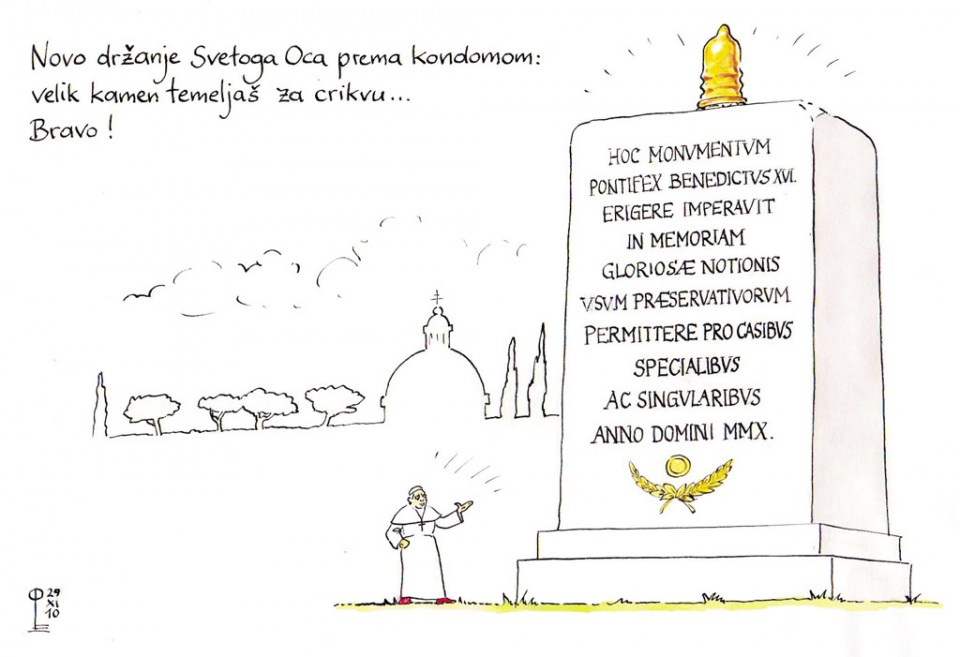 Novo držanje Svetoga Oca prema kondomom:
velik kamen temeljaš za crikvu...
Bravo!
HOC MONVMENTVM
PONTIFEX BENEDICTVS XVI.
ERIGERE IMPERAVIT
IN MEMORIAM
GLORIOSÆ NOTIONIS
VSVM PRÆSERVATIVORVM
PERMITTERE PRO CASIBVS
SPECIALIBVS
AC SINGVLARIBVS
ANNO DOMINI MMX.
29
XI
10